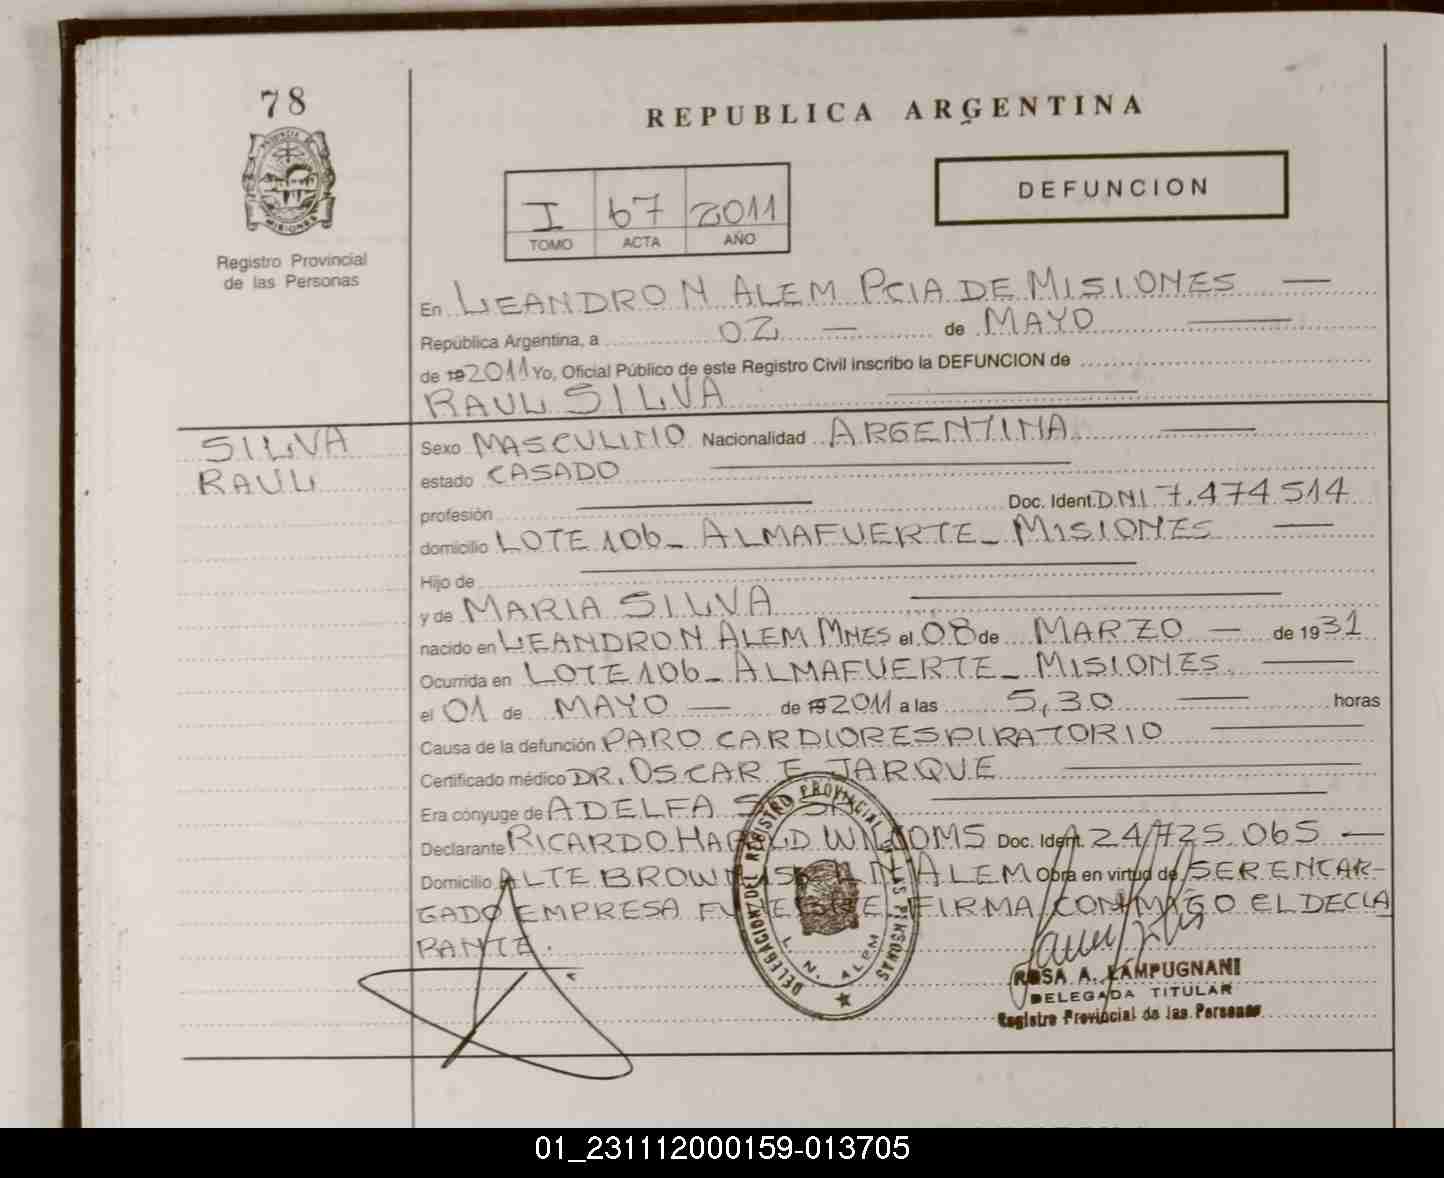 78
REPUBLICA ARGENTINA
PROVINCIA DE MISIONES
Registro Provincial
de las Personas
I 67 2011
TOMO ACTA AÑO
DEFUNCION
En LEANDRO N ALEM PCIA DE MISIONES —
República Argentina, a 02 — de MAYO —
de 19 2011 Yo, Oficial Público de este Registro Civil inscribo la DEFUNCION de
RAUL SILVA —
SILVA
RAUL
Sexo MASCULINO Nacionalidad ARGENTINA —
estado CASADO —
profesión — Doc. Ident. D.N.I 7.474.514
domicilio LOTE 106_ ALMAFUERTE_ MISIONES —
Hijo de —
y de MARIA SILVA —
nacido en LEANDRO N ALEM MNES el 08 de MARZO — de 1931
Ocurrida en LOTE 106_ ALMAFUERTE_ MISIONES. —
el 01 de MAYO — de 19 2011 a las 5,30 — horas
Causa de la defunción PARO CARDIORESPIRATORIO —
Certificado médico DR. OSCAR E JARQUE —
Era cónyuge de ADELFA —
Declarante RICARDO HAROLD Doc. Ident. 24.725.065 —
Domicilio ALTE BROWN ALEM Obra en virtud de SER ENCAR-
GADO EMPRESA FIRMA CONMIGO EL DECLA
RANTE.
DELEGACION DEL REGISTRO PROVINCIAL DE LAS PERSONAS
L. N. ALEM
ROSA A. LAMPUGNANI
DELEGADA TITULAR
Registro Provincial de las Personas
01_231112000159-013705